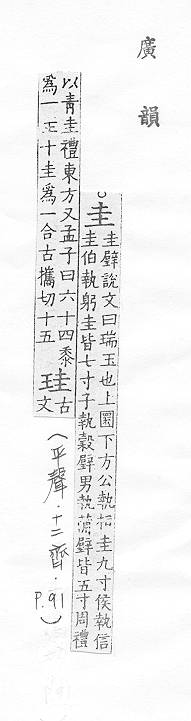 廣韻
圭
圭璧說文曰瑞玉也上圜下方公執桓圭九寸侯執信
圭伯執躬圭皆七寸子執穀璧男執蒲璧皆五寸周禮
以青圭禮東方又孟子曰六十四黍
爲一圭十圭爲一合古攜切十五
珪
古
文
(平聲·十二齊·P.91)